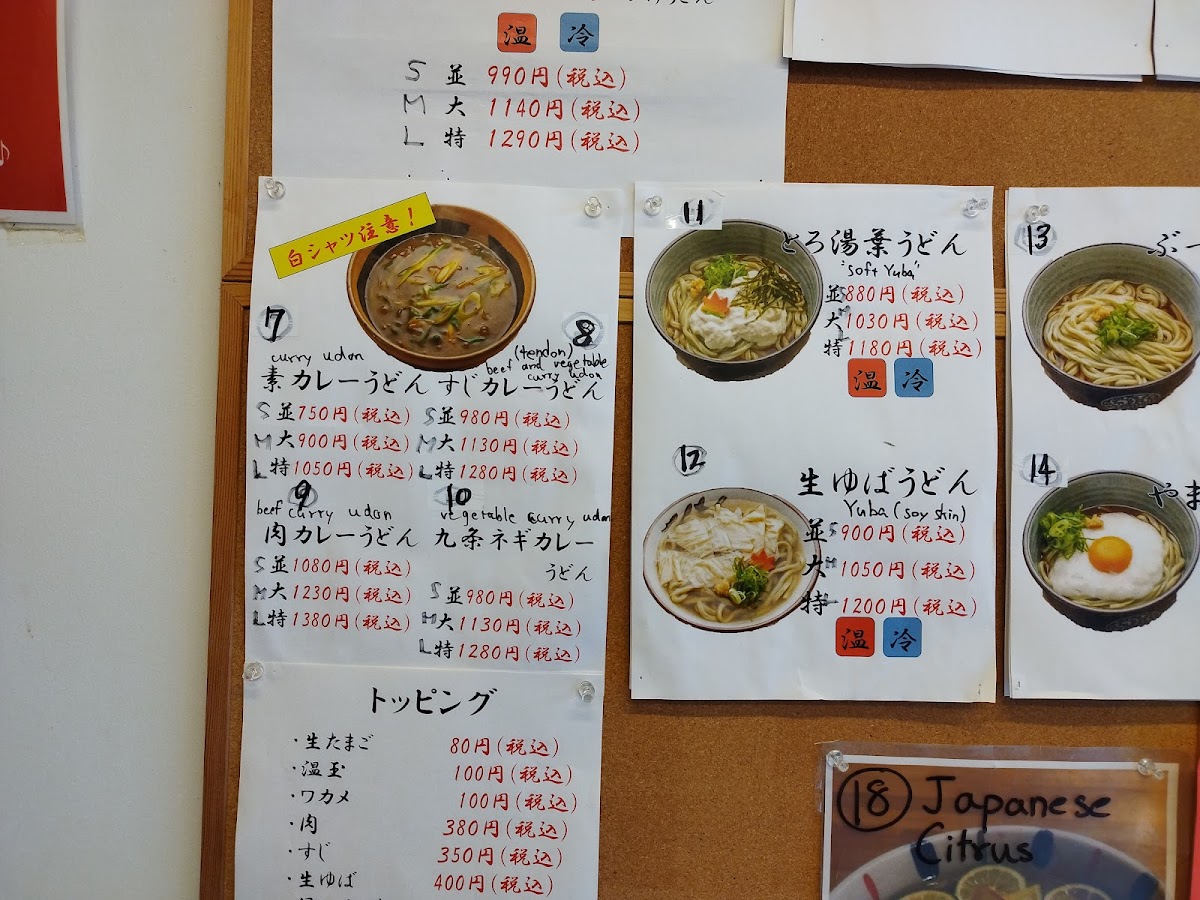 温 冷
S 並 990円(税込)
M 大 1140円(税込)
L 特 1290円(税込)
白シャツ注意!
7
curry udon
素カレーうどん
S 並750円(税込)
M 大900円(税込)
L 特1050円(税込)
8
(tendon)
beef and vegetable
curry udon
すじカレーうどん
S 並980円(税込)
M 大1130円(税込)
L 特1280円(税込)
9
beef curry udon
肉カレーうどん
S 並1080円(税込)
M 大1230円(税込)
L 特1380円(税込)
10
vegetable curry udon
九条ネギカレー
うどん
S 並980円(税込)
M 大1130円(税込)
L 特1280円(税込)
トッピング
・生たまご 80円(税込)
・温玉 100円(税込)
・ワカメ 100円(税込)
・肉 380円(税込)
・すじ 350円(税込)
・生ゆば 400円(税込)
11
とろ湯葉うどん
"Soft Yuba"
並S 880円(税込)
大M 1030円(税込)
特L 1180円(税込)
温 冷
12
生ゆばうどん
Yuba (soy skin)
並S 900円(税込)
大M 1050円(税込)
特L 1200円(税込)
温 冷
13
ぶっ
14
やま
18 Japanese
Citrus